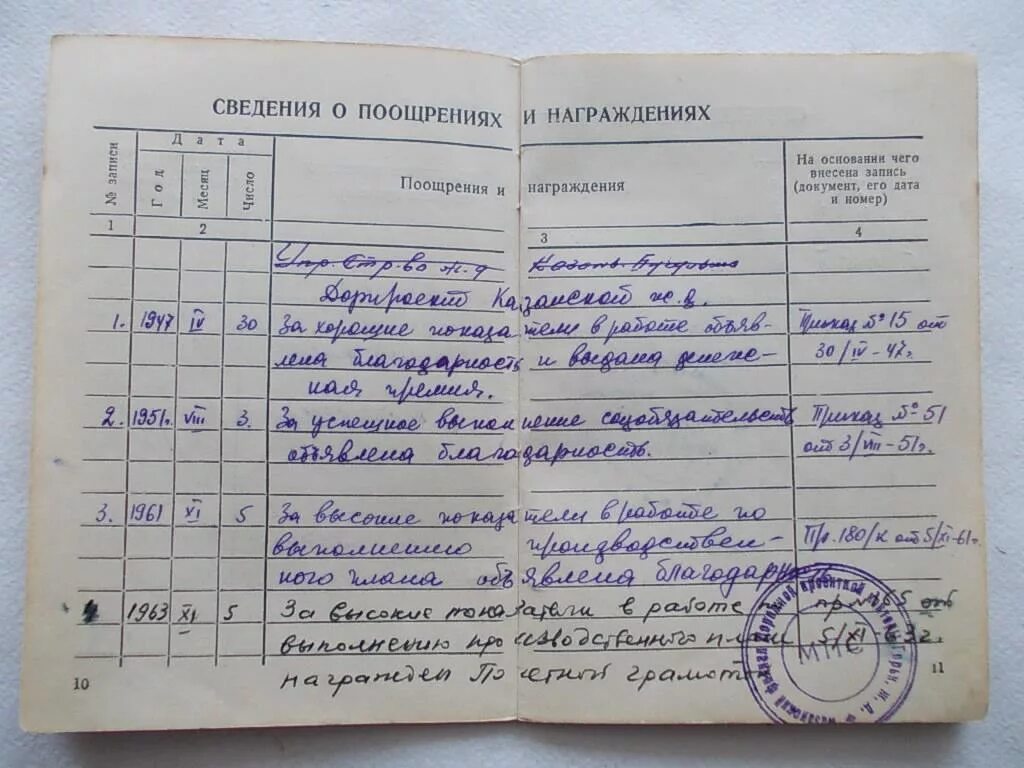 СВЕДЕНИЯ О ПООЩРЕНИЯХ И НАГРАЖДЕНИЯХ
№ записи
Дата
Год
Месяц
Число
Поощрения и награждения
На основании чего
внесена запись
(документ, его дата
и номер)
1 2 3 4
Упр. Стр-ва ж.д Казань
Дорпроект Казанской ж.д.
1. 1947 IV 30 За хорошие показатели в работе объяв- Приказ № 15 от
лена благодарность и выдана денеж- 30/IV-47г.
ная премия.
2. 1951г. VIII 3. За успешное выполнение соцобязательств Приказ № 51
объявлена благодарность. от 3/VIII-51г.
3. 1961 XI 5 За высокие показатели в работе по
выполнению производствен- Пр. 180/к от 5/XI-61г.
ного плана объявлена благодарность
4 1963 XI 5 За высокие показатели в работе по пр № 165 от
выполнению производственного плана 5/XI-63г.
награжден Почетной грамотой
10 11